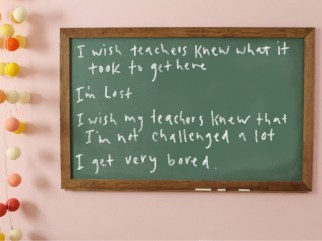 I wish teachers knew what it
took to get here
I'm Lost
I wish my teachers knew that
I'm not challenged a lot
I get very bored.